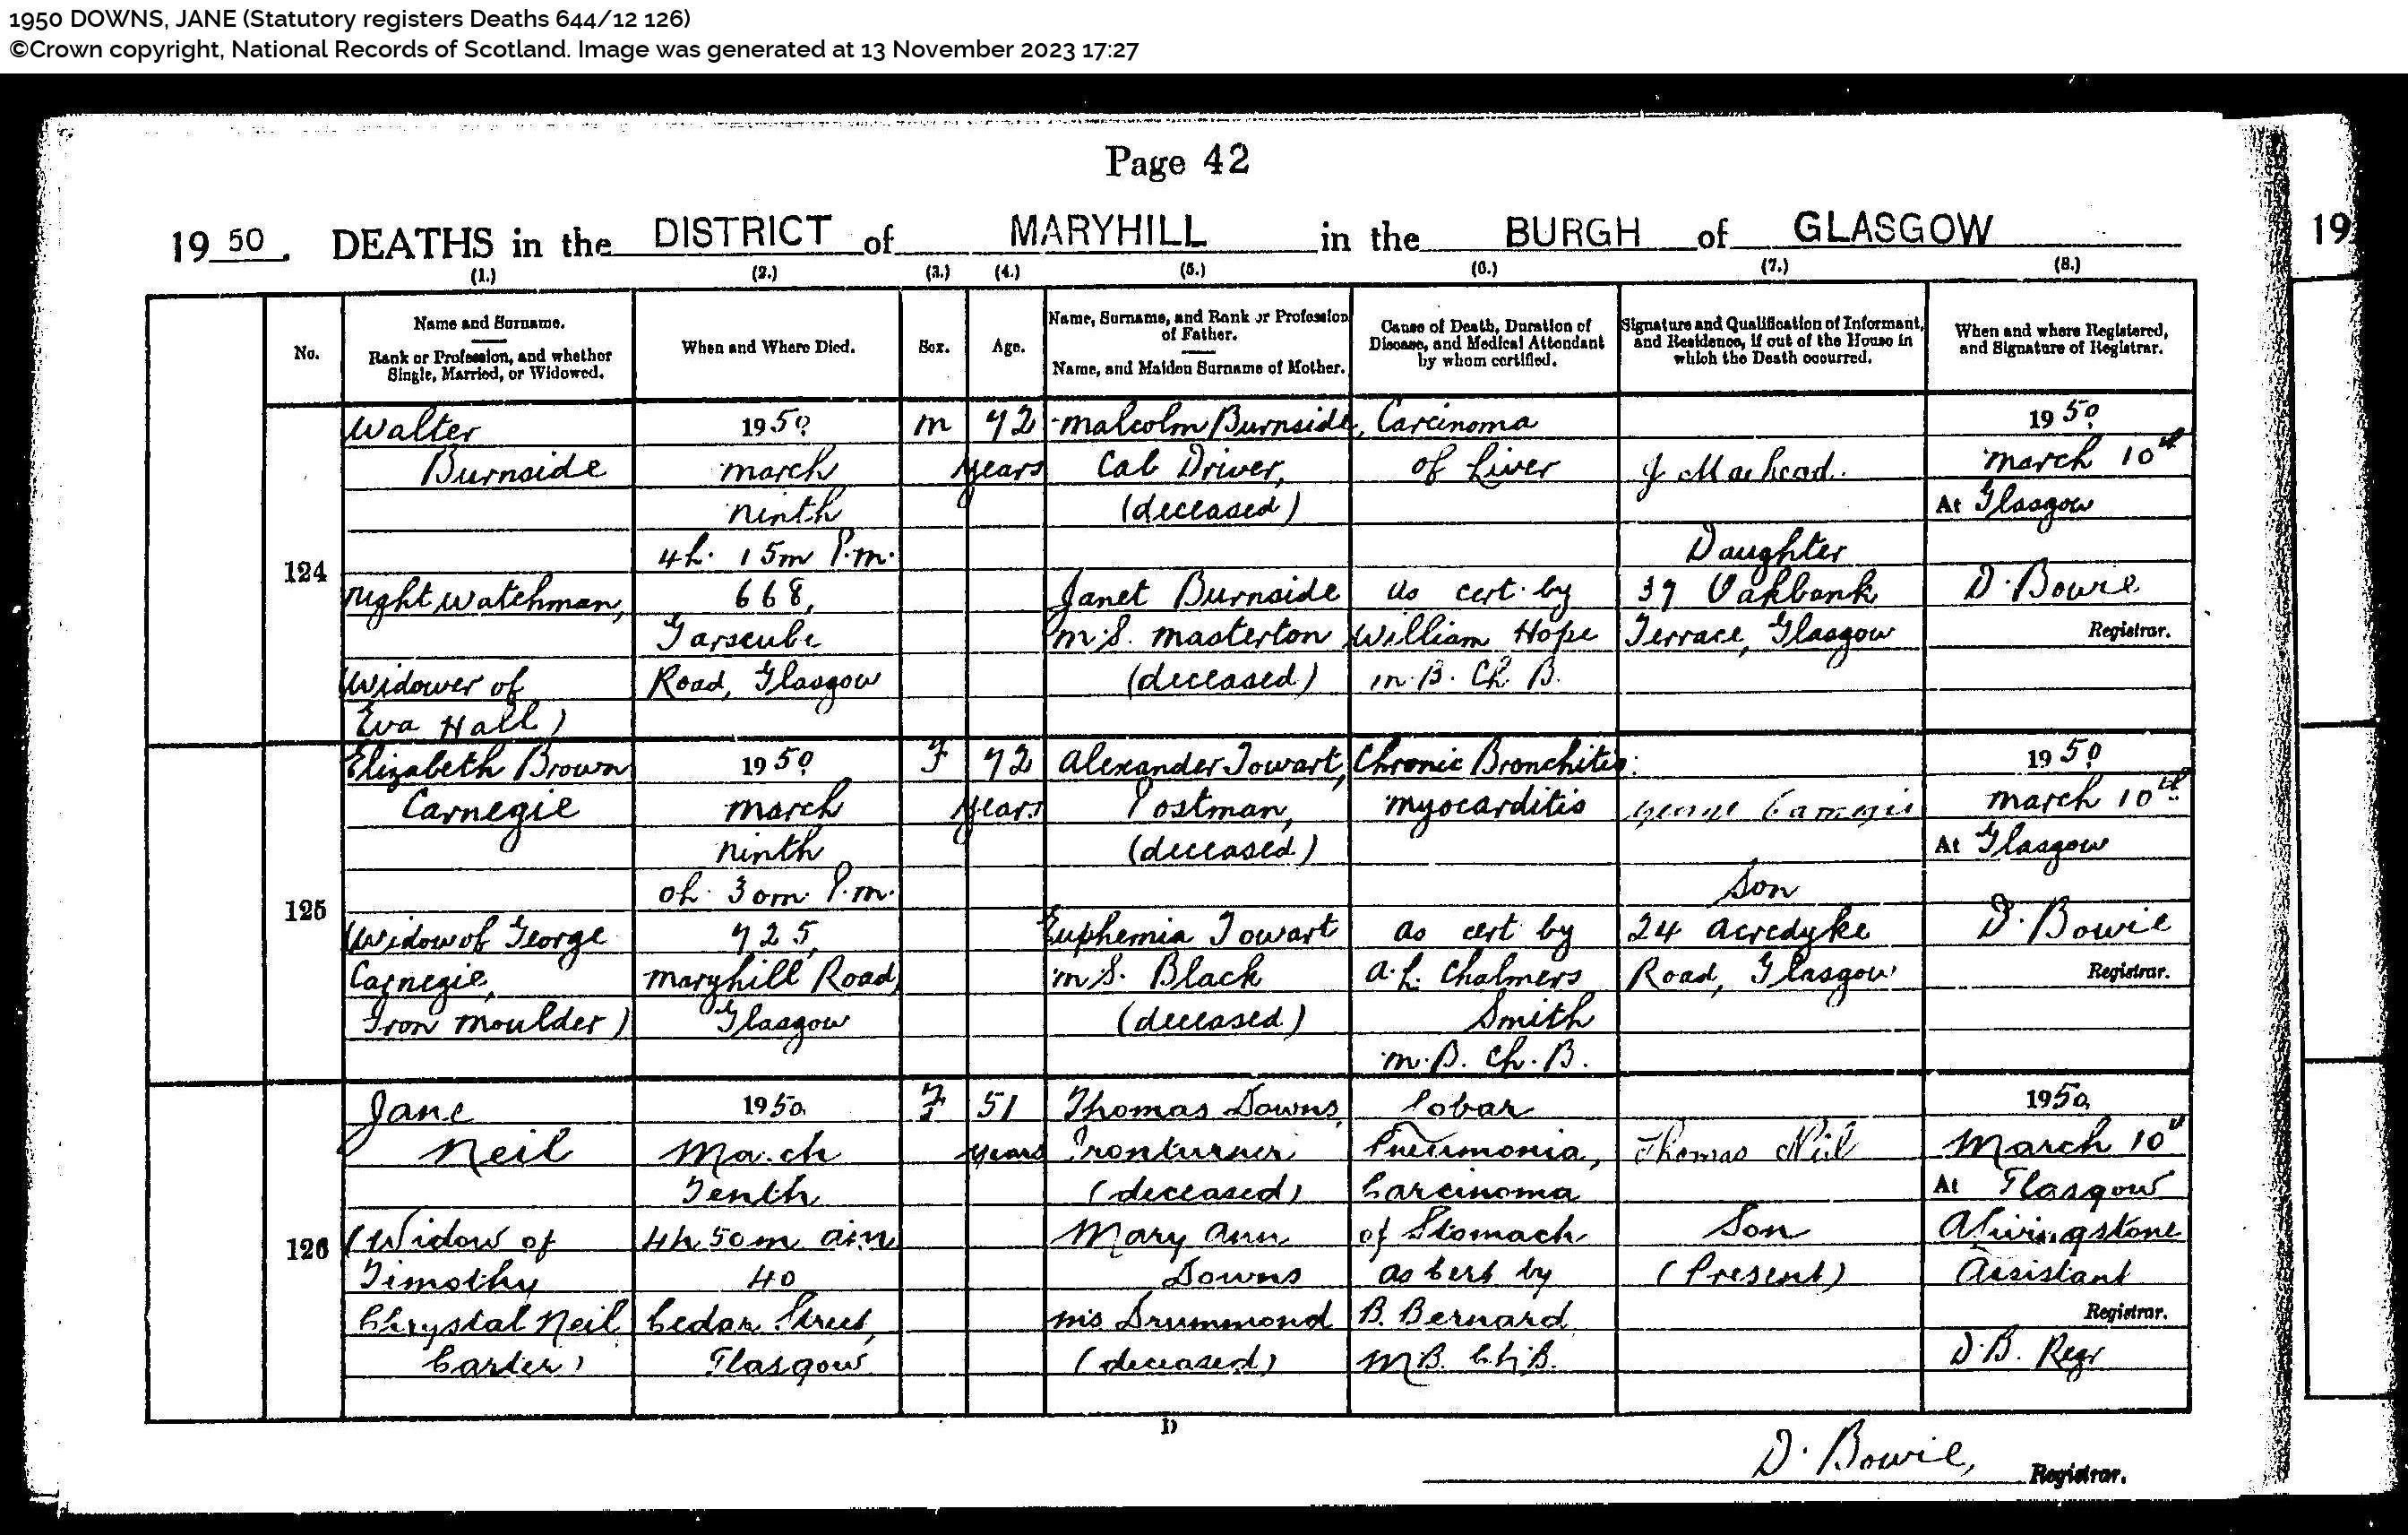 1950 DOWNS, JANE (Statutory registers Deaths 644/12 126)
©Crown copyright, National Records of Scotland. Image was generated at 13 November 2023 17:27
Page 42
1950. DEATHS in the DISTRICT of MARYHILL in the BURGH of GLASGOW
19
(1.) (2.) (3.) (4.) (5.) (6.) (7.) (8.)
No.
Name and Surname.
Rank or Profession, and whether
Single, Married, or Widowed.
When and Where Died.
Sex.
Age.
Name, Surname, and Rank or Profession
of Father.
Name, and Maiden Surname of Mother.
Cause of Death, Duration of
Disease, and Medical Attendant
by whom certified.
Signature and Qualification of Informant,
and Residence, if out of the House in
which the Death occurred.
When and where Registered,
and Signature of Registrar.
124
Walter
Burnside
Night Watchman,
(Widower of
Eva Hall)
1950
March
Ninth
4h. 15m P.m.
668,
Garscube
Road, Glasgow
M
72
years
Malcolm Burnside,
Cab Driver,
(deceased)
Janet Burnside
m.S. Masterton
(deceased)
Carcinoma
of Liver
as cert. by
William Hope
M.B. Ch B.
Daughter
37 Oakbank
Terrace, Glasgow
1950
March 10th
At Glasgow
D. Bowie
Registrar.
125
Elizabeth Brown
Carnegie
(Widow of George
Carnegie,
Iron Moulder)
1950
March
Ninth
0h. 30m. P.m.
725,
Maryhill Road,
Glasgow
F
72
years
Alexander Towart,
Postman,
(deceased)
Euphemia Towart
m.S. Black
(deceased)
Chronic Bronchitis:
Myocarditis
as cert by
A. L. Chalmers
Smith
M.B. Ch.B.
George Carnegie
Son
24 Acredyke
Road, Glasgow
1950
March 10th
At Glasgow
D. Bowie
Registrar.
126
Jane
Neil
(Widow of
Timothy
Chrystal Neil
Carter)
1950
March
Tenth
4h 50m am
40
Cedar Street,
Glasgow
F
51
years
Thomas Downs,
Ironturner
(deceased)
Mary Ann
Downs
ms Drummond
(deceased)
Lobar
Pneumonia,
Carcinoma
of Stomach
as cert by
B. Bernard
M.B. Ch.B.
Thomas Neil
Son
(Present)
1950
March 10th
At Glasgow
A Livingstone
Assistant
Registrar.
D.B. Regr
D
D. Bowie, Registrar.